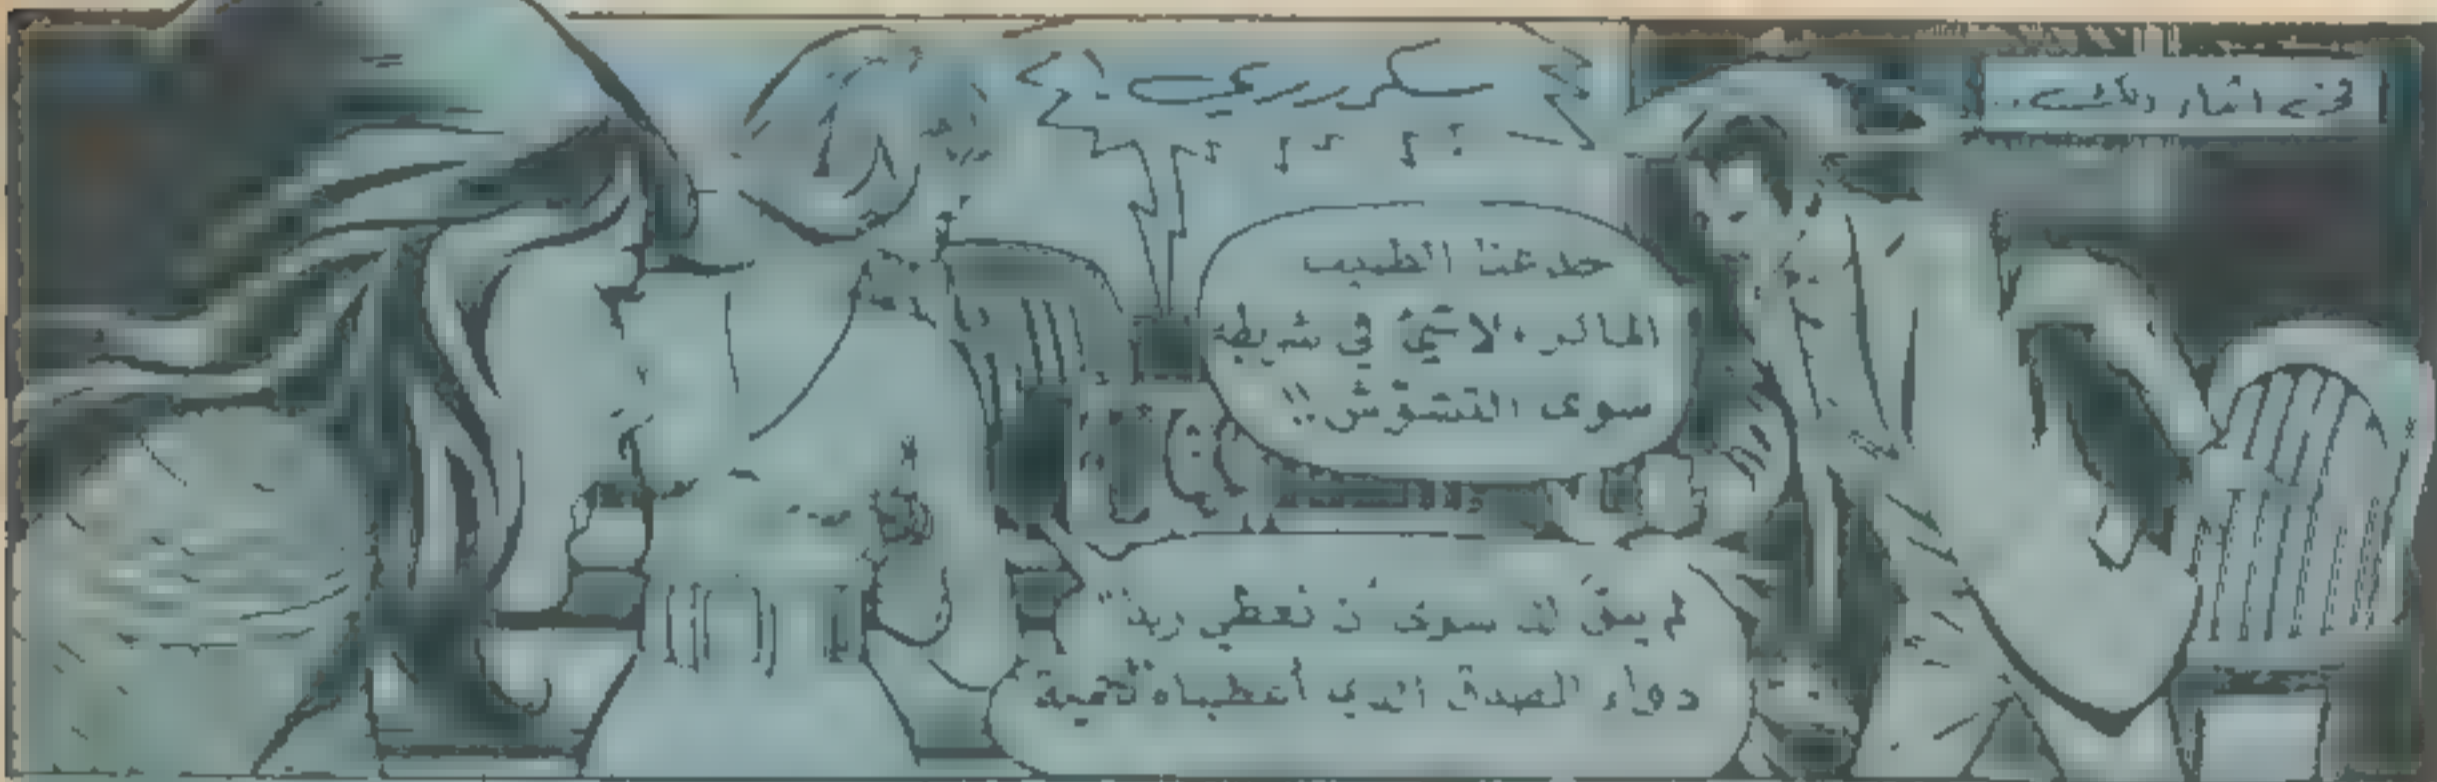 في اثناء ذلك..
خدعنا الطبيب
الماكر، لا شيء في شريطه
سوى التشوّش!!
لم يبق لنا سوى أن نعطي
دواء الصدق الذي أعطيناه